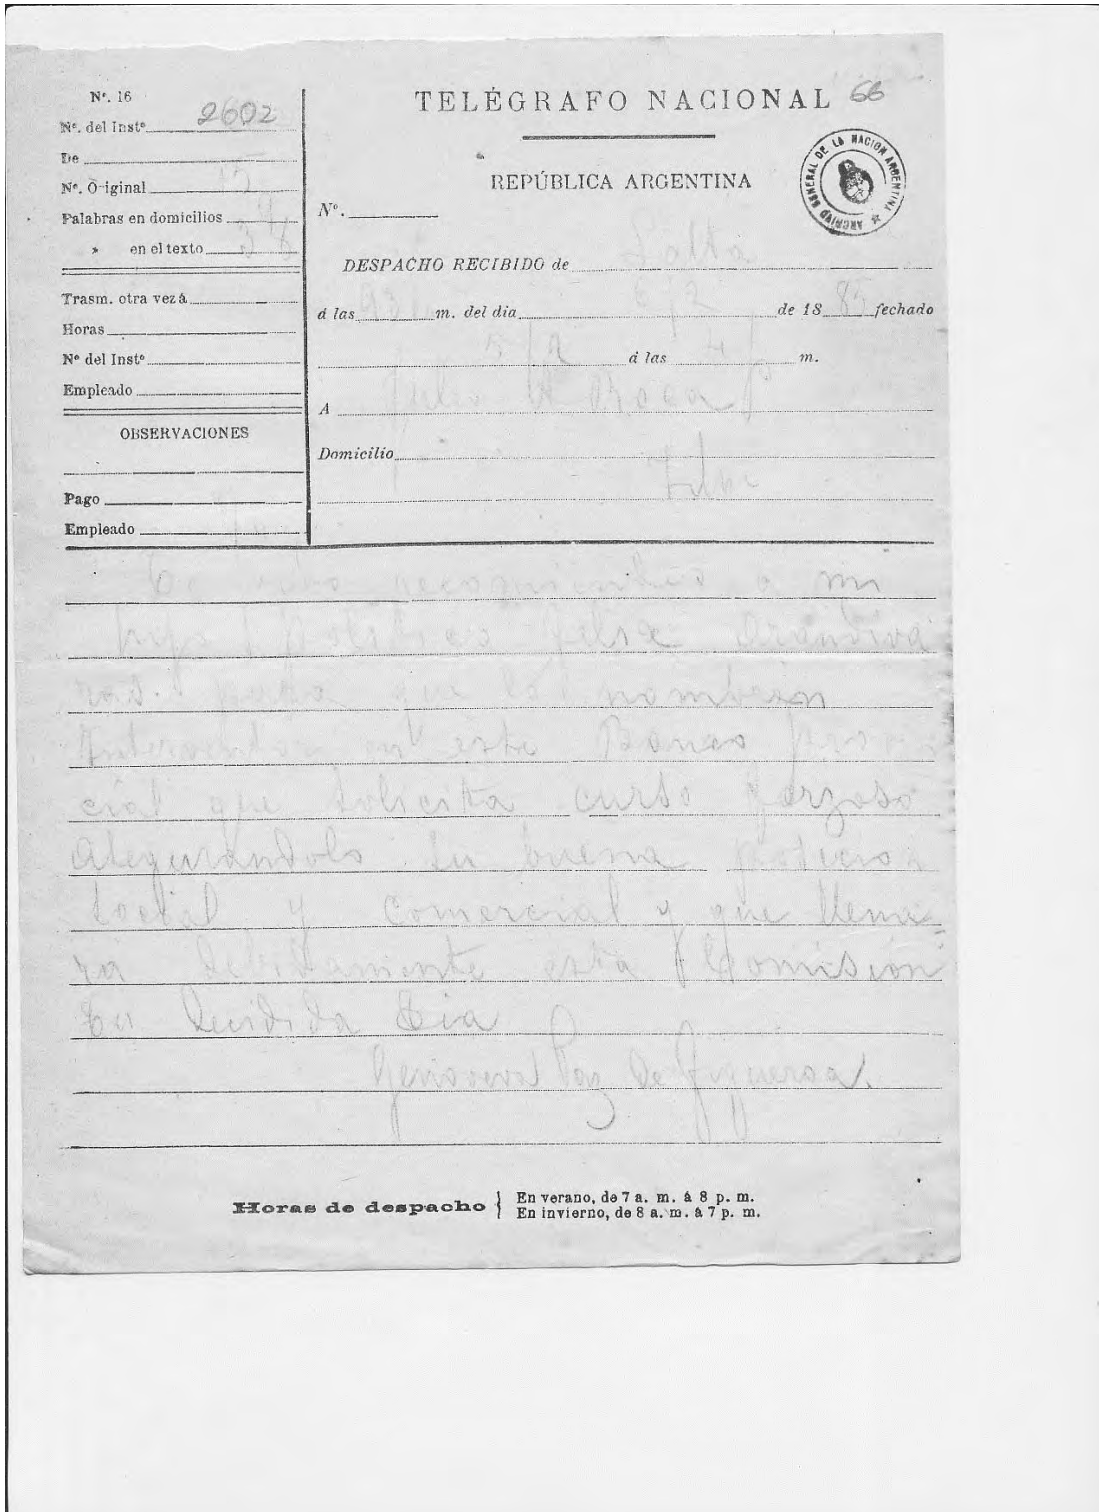 Nº. 16
Nº. del Instº 2602
De
Nº. Original
Palabras en domicilios 9
» en el texto
Trasm. otra vez á
Horas
Nº del Instº
Empleado
OBSERVACIONES
Pago
Empleado
TELÉGRAFO NACIONAL 66
REPÚBLICA ARGENTINA
ARCHIVO GENERAL DE LA NACION ARGENTINA
Nº.
DESPACHO RECIBIDO de Salta
á las 931 m. del dia 6/2 de 1885 fechado
5/2 á las 4 m.
A Julio A Roca
Domicilio
recomiendes a mi
hijo Politico Felix
para que lo nombren
Interventor en este Banco provin
cial que solicita curso forzoso
asegurandole su buena posicion
social y comercial y que llena-
ra debidamente esta Comision
tu decidida tia
Genoveva Paz de Figueroa.
Horas de despacho } En verano, de 7 a. m. á 8 p. m.
En invierno, de 8 a. m. á 7 p. m.